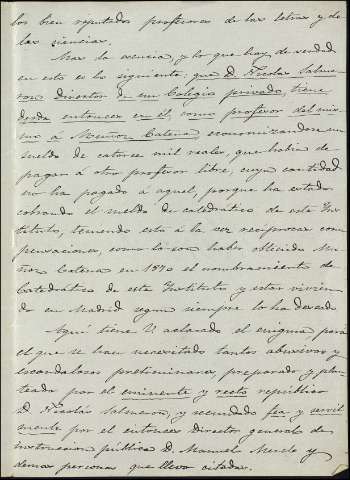 los bien reputados profesores de las letras y de
las ciencias.
Mas la esencia, y lo que hay de verdad
en esto es lo siguiente: que D. Nicolas Salme-
ron director de un Colegio privado, tiene
desde entonces en él, como profesor del mis-
mo á Muñoz Catena economizandose un
sueldo de catorce mil reales, que habia de
pagar á otro profesor libre, cuya cantidad
no ha pagado á aquel, porque ha estado
cobrando el sueldo de catedratico de este Ins-
tituto, teniendo esto á la vez reciprocas com-
pensaciones, como lo son haber obtenido Mu-
ñoz Catena en 1870 el nombramiento de
Catedratico de este Instituto y estar vivien-
do en Madrid segun siempre lo ha deseado.
Aquí tiene V. aclarado el enigma para
el que se han necesitado tantos abusivos y
escandalosos preliminares, preparado y plan-
teado por el eminente y recto repúblico
D. Nicolás Salmeron, y secundado fea y servil-
mente por el entonces Director general de
Instruccion pública D. Manuel Merelo y
demas personas que llevo citadas.